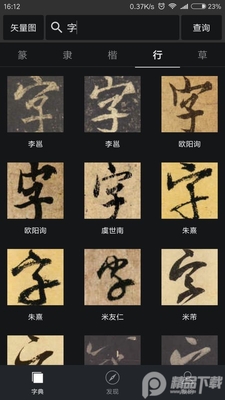 16:12
0.37K/s
23%
矢量图
字
查询
篆 隶 楷 行 草
字 字 字
李邕 李邕 欧阳询
字 字 字
欧阳询 虞世南 朱熹
字 字 字
朱熹 米友仁 米芾
字典 发现
精品下载